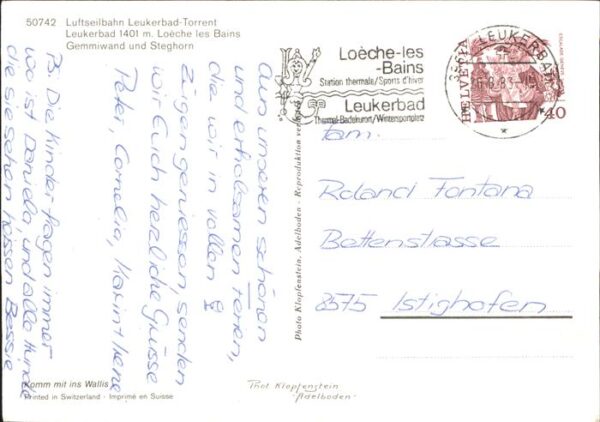 50742 Luftseilbahn Leukerbad-Torrent
Leukerbad 1401 m. Loèche les Bains
Gemmiwand und Steghorn
Aus unseren schönen
und erholsamen Ferien,
die wir in vollen
Zügen geniessen, senden
wir Euch herzliche Grüsse
Peter, Cornelia, Marin + Irene
PS. Die Kinder fragen immer
wo ist Daniela, und alle Hunde
die sie sehen heissen Bessie
Komm mit ins Wallis
Printed in Switzerland - Imprimé en Suisse
Photo Klopfenstein, Adelboden - Reproduktion
Loèche-les
-Bains
Station thermale/Sports d'hiver
Leukerbad
Thermal-Badekurort/Wintersportplatz
LEUKERBAD
HELVETIA
40
Fam.
Roland Fontana
Bettenstrasse
8575 Istighofen
Phot Klopfenstein
Adelboden